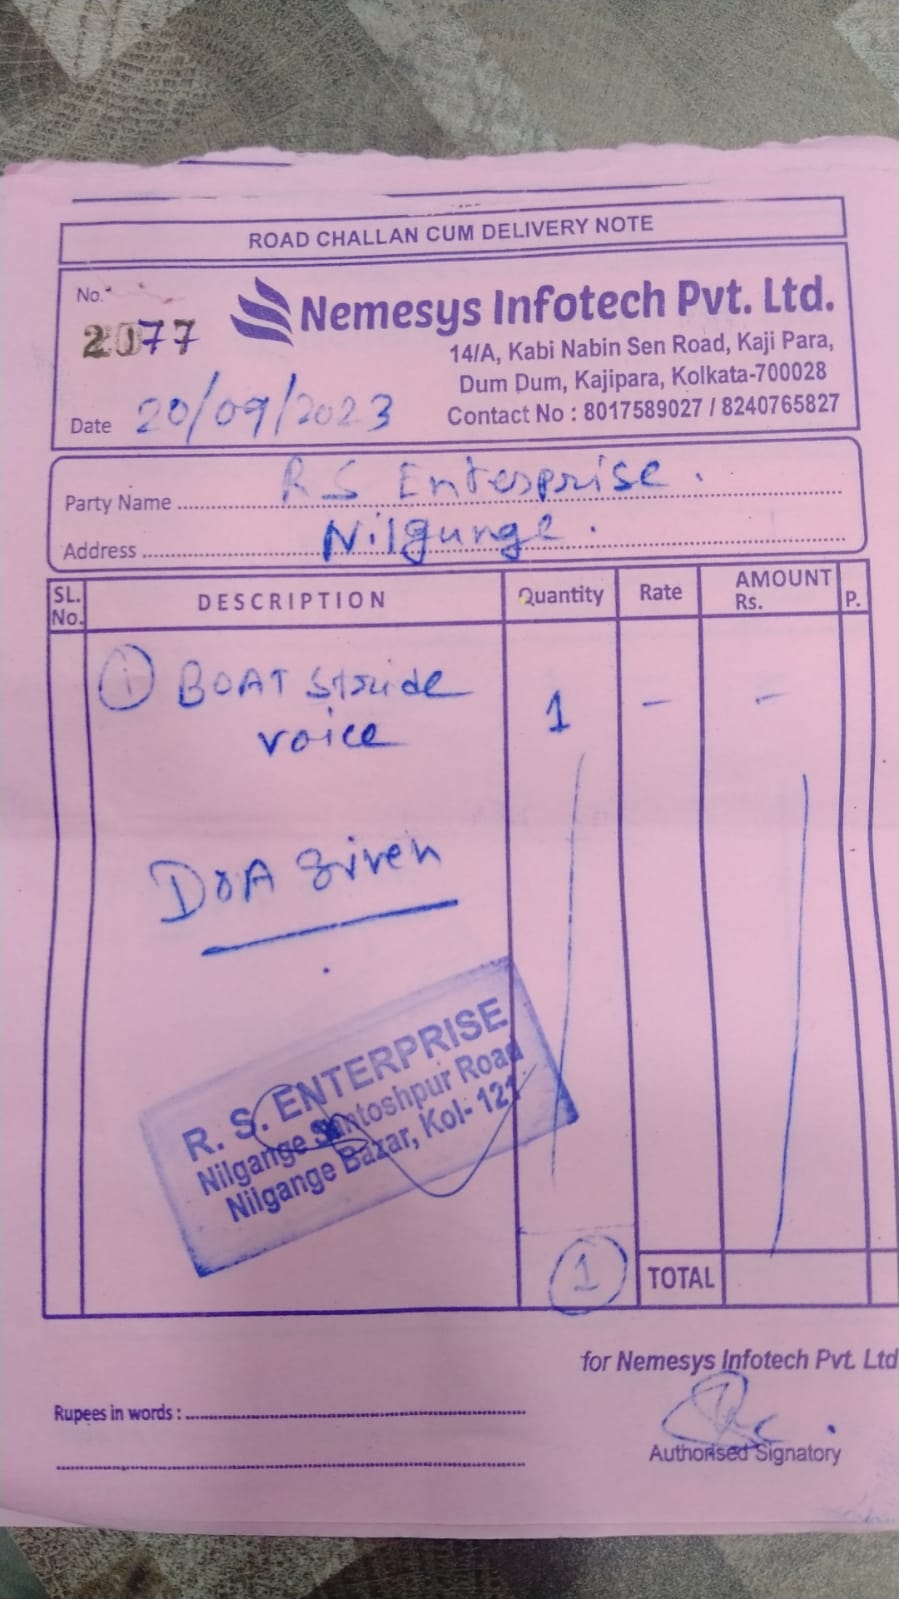 ROAD CHALLAN CUM DELIVERY NOTE
No.
2077
Nemesys Infotech Pvt. Ltd.
14/A, Kabi Nabin Sen Road, Kaji Para,
Dum Dum, Kajipara, Kolkata-700028
Contact No : 8017589027 / 8240765827
Date 20/09/2023
Party Name R S Enterprise.
Address Nilgunge.
SL. No. DESCRIPTION Quantity Rate AMOUNT Rs. P.
① BOAT Stride 1 - -
voice
DOA Given
R. S. ENTERPRISE
Nilgange Santoshpur Road
Nilgange Bazar, Kol- 121
1 TOTAL
for Nemesys Infotech Pvt. Ltd
Rupees in words :
Authorised Signatory